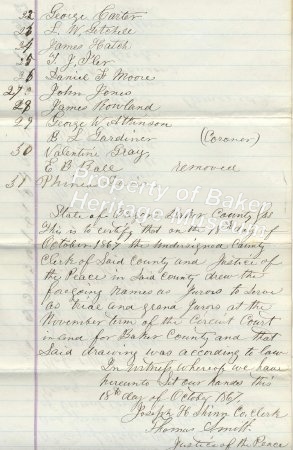 22 George Carter
23 L. W. Getchell
24 James Hatch
25 T. J. Iler
26 Daniel F Moore
27 John Jones
28 James Rowland
29 George W Atkinson
B. L. Gardiner (Coroner)
30 Valentine Gray
E. B. Ball removed
31
Property of Baker
Heritage
State of Baker County SS
This is to certify that on the 18th day of
October 1867 the undersigned County
Clerk of Said County and Justice of
the Peace in Said County drew the
foregoing names as Jurors to Serve
as Trial and grand Jurors at the
November term of the Circuit Court
in and for Baker County and that
Said drawing was according to law
In Witness whereof we have
hereunto set our hands this
18th day of October 1867.
Joseph H Shinn Co. Clerk
Thomas Smith
Justice of the Peace